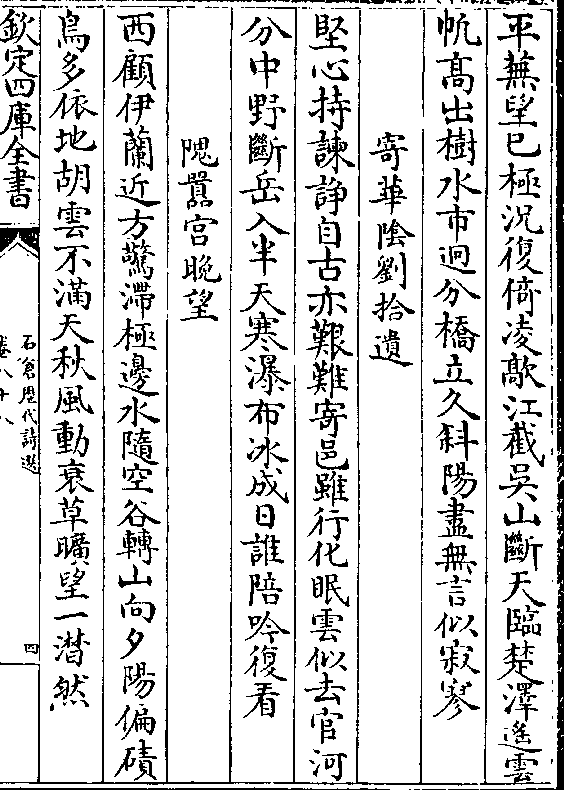 平蕪望已極況復倚凌歊江截吳山斷天臨楚澤遙雲
帆髙出樹水市迥分橋立久斜陽盡無言似寂寥
寄華陰劉拾遺
堅心持諫諍自古亦艱難寄邑雖行化眠雲似去官河
分中野斷岳入半天寒瀑布冰成日誰陪吟復看
隗囂宫晚望
西顧伊蘭近方驚滯極邊水隨空谷轉山向夕陽偏磧
鳥多依地胡雲不滿天秋風動衰草曠望一潸然
欽定四庫全書
石倉歴代詩選
卷八十八
四